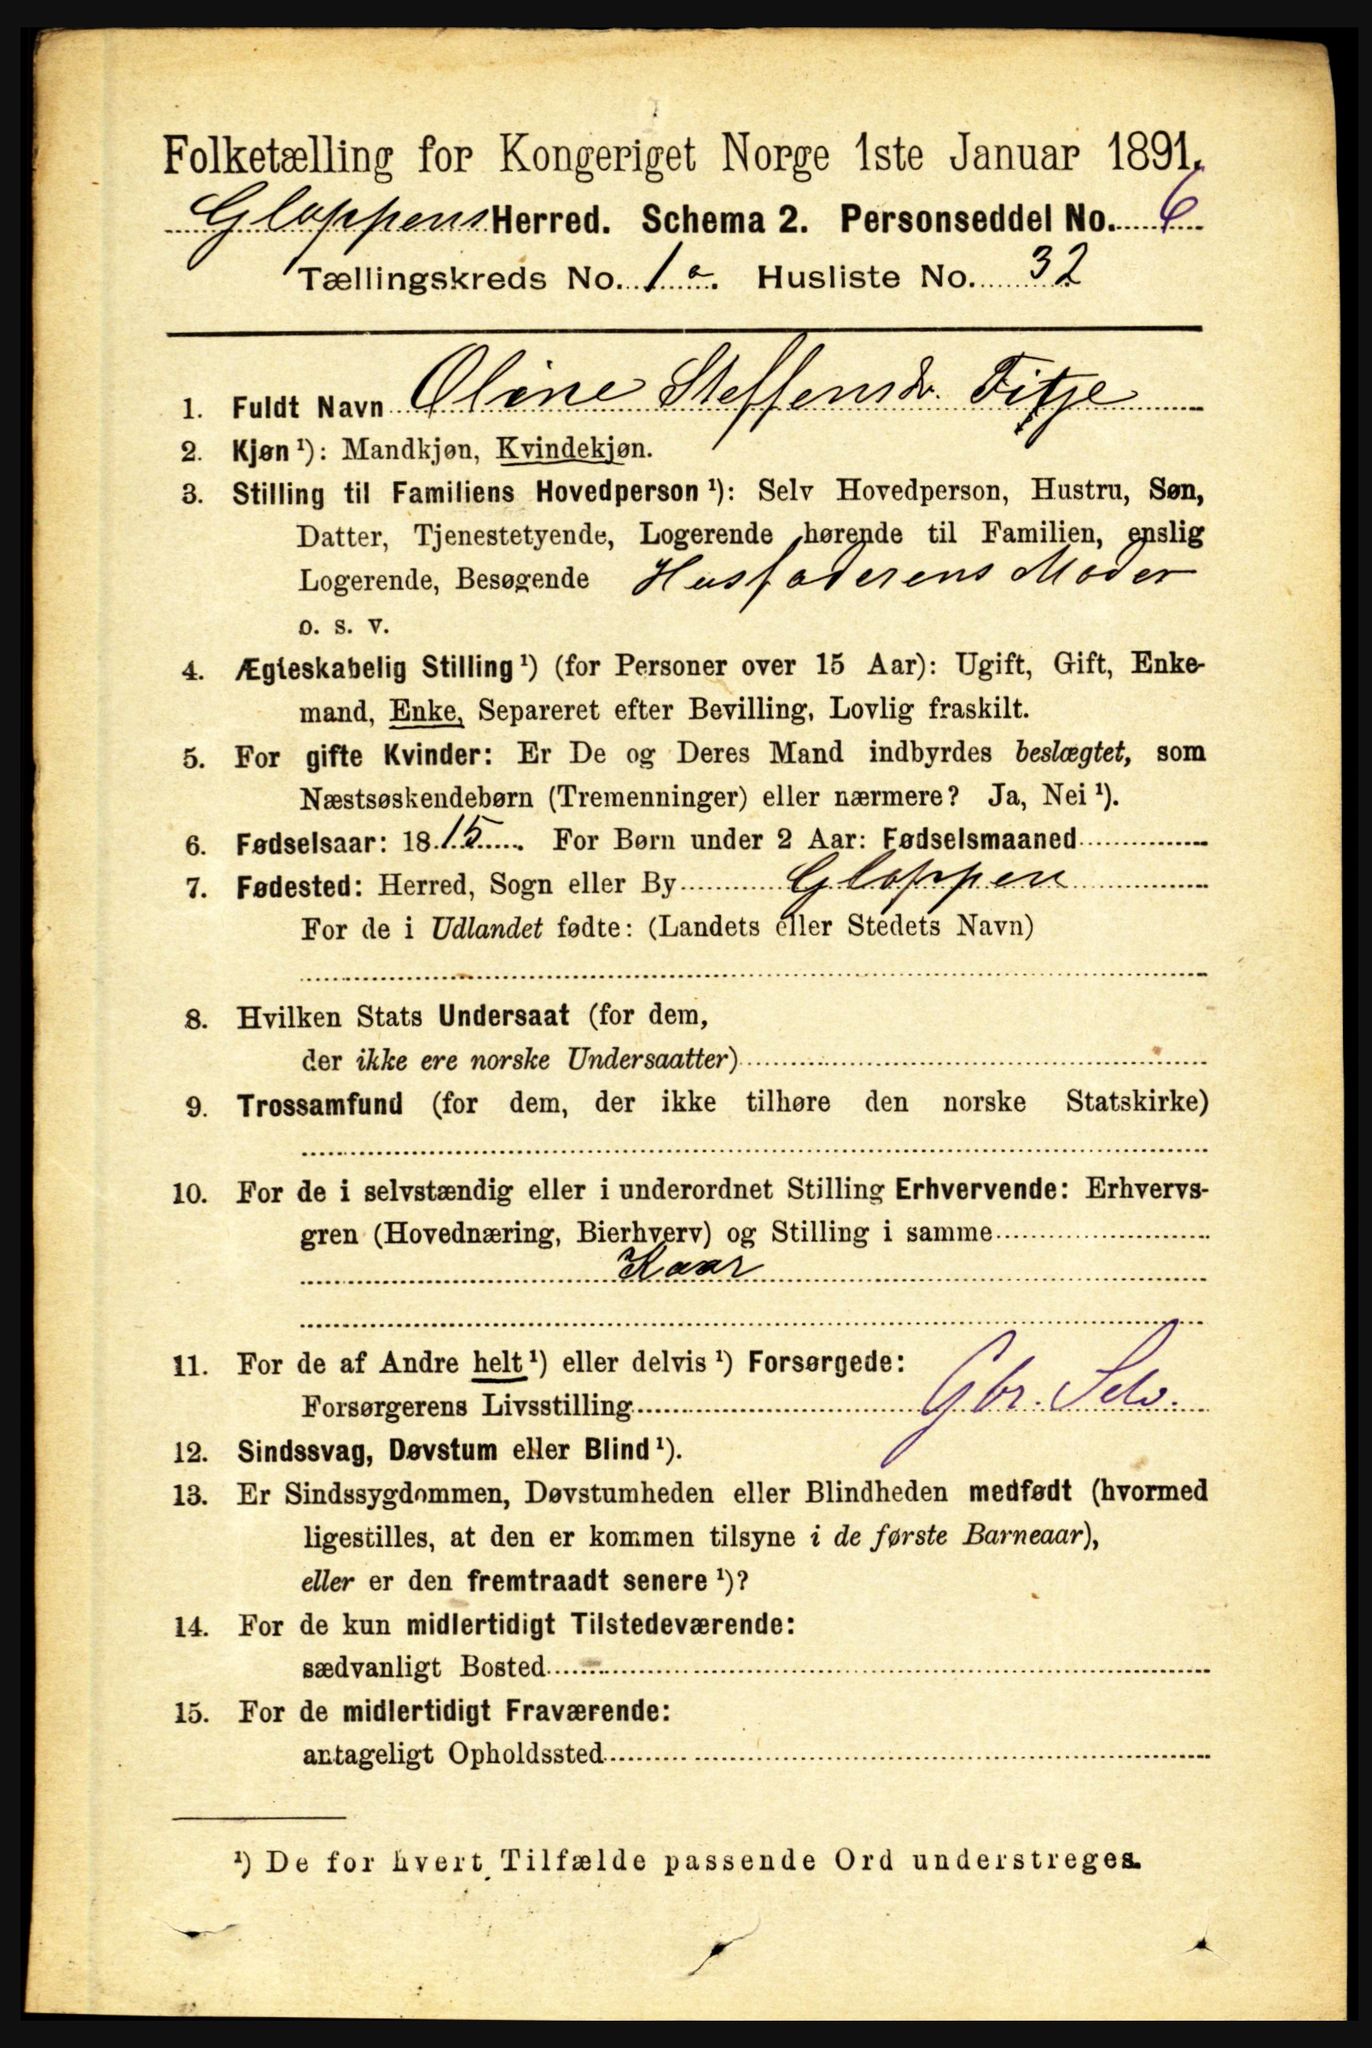 Folketælling for Kongeriget Norge 1ste Januar 1891.
Gloppens Herred. Schema 2. Personseddel No. 6
Tællingskreds No. 1 a. Husliste No. 32
1. Fuldt Navn Oline Steffensdr. Fitje
2. Kjøn¹): Mandkjøn, Kvindekjøn.
3. Stilling til Familiens Hovedperson¹): Selv Hovedperson, Hustru, Søn,
Datter, Tjenestetyende, Logerende hørende til Familien, enslig
Logerende, Besøgende Husfaderens Moder
o. s. v.
4. Ægteskabelig Stilling¹) (for Personer over 15 Aar): Ugift, Gift, Enke-
mand, Enke, Separeret efter Bevilling, Lovlig fraskilt.
5. For gifte Kvinder: Er De og Deres Mand indbyrdes beslægtet, som
Næstsøskendebørn (Tremenninger) eller nærmere? Ja, Nei¹).
6. Fødselsaar: 1815. For Børn under 2 Aar: Fødselsmaaned
7. Fødested: Herred, Sogn eller By Gloppen
For de i Udlandet fødte: (Landets eller Stedets Navn)
8. Hvilken Stats Undersaat (for dem,
der ikke ere norske Undersaatter)
9. Trossamfund (for dem, der ikke tilhøre den norske Statskirke)
10. For de i selvstændig eller i underordnet Stilling Erhvervende: Erhvervs-
gren (Hovednæring, Bierhverv) og Stilling i samme
Kaar
11. For de af Andre helt¹) eller delvis¹) Forsørgede:
Forsørgerens Livsstilling Gbr. Selv.
12. Sindssvag, Døvstum eller Blind¹).
13. Er Sindssygdommen, Døvstumheden eller Blindheden medfødt (hvormed
ligestilles, at den er kommen tilsyne i de første Barneaar),
eller er den fremtraadt senere¹)?
14. For de kun midlertidigt Tilstedeværende:
sædvanligt Bosted
15. For de midlertidigt Fraværende:
antageligt Opholdssted
¹) De for hvert Tilfælde passende Ord understreges.